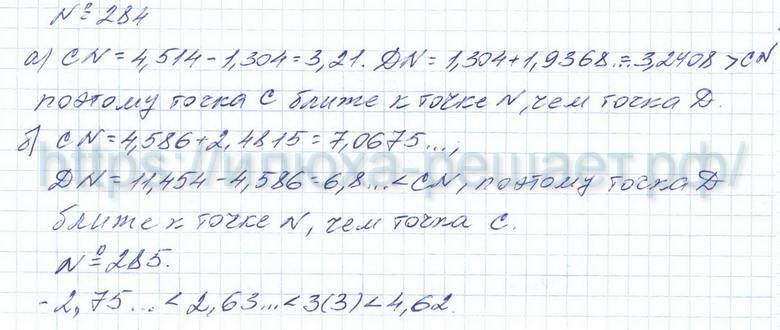 № 284
а) CN = 4,514 - 1,304 = 3,21. DN = 1,304 + 1,9368... = 3,2408 > CN
поэтому точка C ближе к точке N, чем точка D.
б) CN = 4,586 + 2,4815 = 7,0675...,
https://илюха-решает.рф/
DN = 11,454 - 4,586 = 6,8... < CN, поэтому точка D
ближе к точке N, чем точка C.
№ 285.
-2,75... < 2,63... < 3(3) < 4,62.